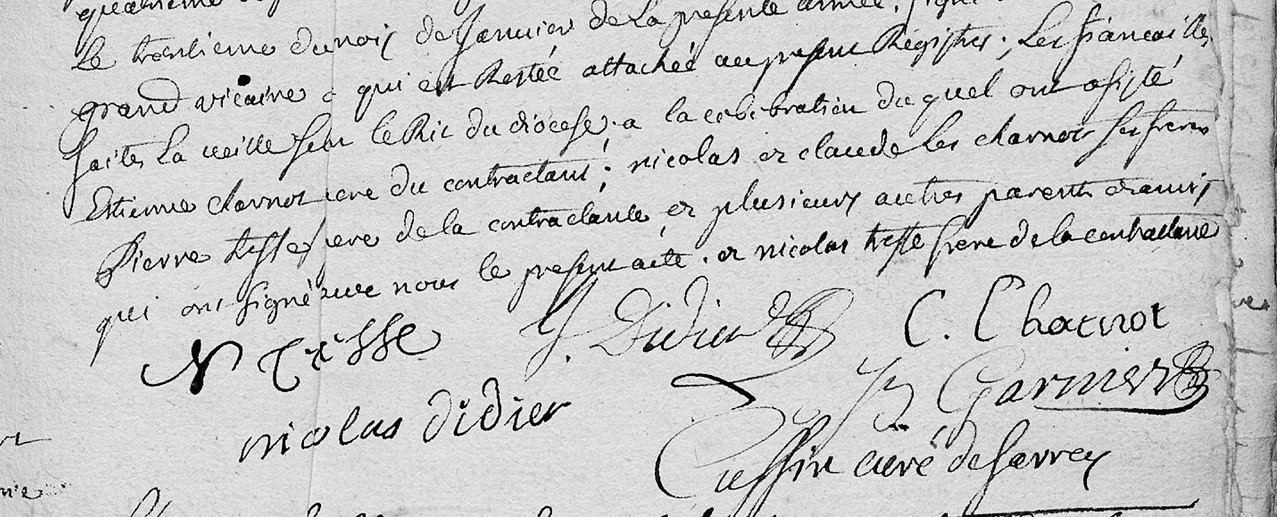 quatrieme
Le trentieme du mois de Janvier de la presente année, signé
grand vicaire & qui est Restée attachée au present Régistre; Les fiancailles
faites La veille selon le Rit du diocese. a la celebration du quel ont assisté
Estienne charnot pere du contractant; nicolas et claude les charnots ses freres
Pierre tesse pere de la contractante et plusieurs autres parents et amis
qui ont signé avec nous le present acte. et nicolas tresse frere de la contractante
N Tresse J. Didier C. Charnot
nicolas didier Garnier
curé de Sarrey